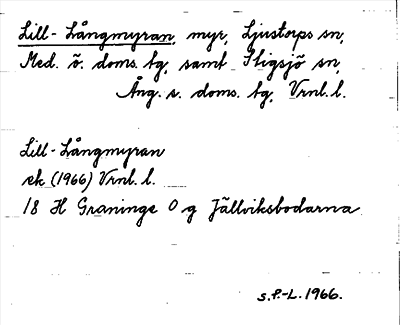 Lill-Långmyran, myr, Ljustorps sn,
Med. ö. doms. tg, samt Stigsjö sn,
Ång. s. doms. tg, Vrnl. l.
Lill-Långmyran
ek (1966) Vrnl. l.
18 H Graninge 0 g Jällviksbodarna
S.F.-L. 1966.